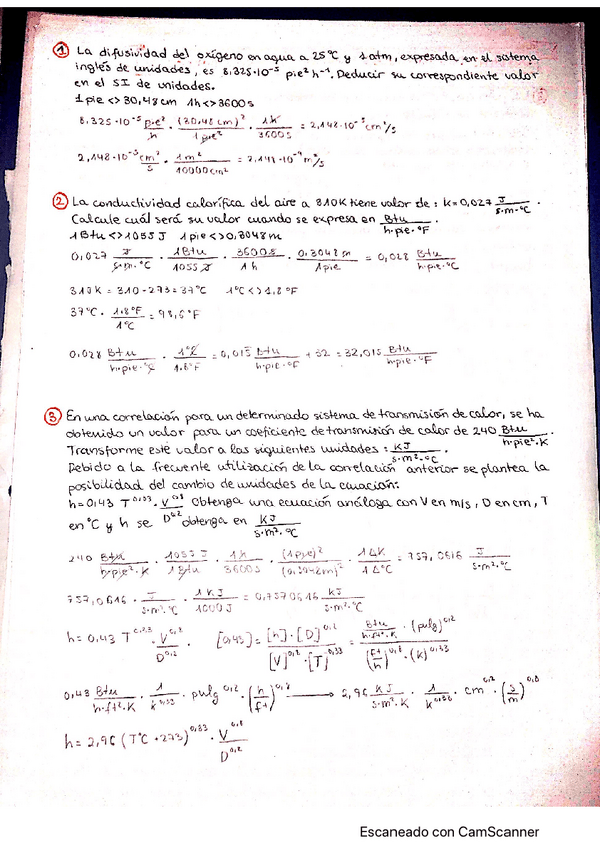 ① La difusividad del oxígeno en agua a 25°C y 1 atm, expresada en el sistema
inglés de unidades, es 8.325·10⁻⁵ pie² h⁻¹. Deducir su correspondiente valor
en el SI de unidades.
1 pie <> 30,48 cm 1h <> 3600 s
8.325·10⁻⁵ pie²/h · (30.48 cm)²/1 pie² · 1h/3600 s = 2,148·10⁻⁵ cm²/s
2,148·10⁻⁵ cm²/s · 1 m²/10000 cm² = 2.148·10⁻⁹ m²/s
② La conductividad calorífica del aire a 310K tiene valor de: k=0,027 J/s·m·°C.
Calcule cuál será su valor cuando se expresa en Btu/h·pie·°F.
1 Btu <> 1055 J 1 pie <> 0,3048 m
0,027 J/s·m·°C · 1 Btu/1055 J · 3600 s/1 h · 0.3048 m/1 pie = 0,028 Btu/h·pie·°C
310 K = 310-273 = 37°C 1°C <> 1.8°F
37°C · 1.8°F/1°C = 98,6°F
0,028 Btu/h·pie·°C · 1°C/1.8°F = 0,015 Btu/h·pie·°F + 32 = 32,015 Btu/h·pie·°F
③ En una correlación para un determinado sistema de transmisión de calor, se ha
obtenido un valor para un coeficiente de transmisión de calor de 240 Btu/h·pie²·K.
Transforme este valor a las siguientes unidades: KJ/s·m²·°C
Debido a la frecuente utilización de la correlación anterior se plantea la
posibilidad del cambio de unidades de la ecuación:
h=0,43 T⁰'³³ · V⁰'⁸/D⁰'² obtenga una ecuación análoga con V en m/s, D en cm, T
en °C y h se obtenga en KJ/s·m²·°C
240 Btu/h·pie²·K · 1055 J/1 Btu · 1 h/3600 s · (1 pie)²/(0,3042 m)² · 1 ΔK/1 Δ°C = 757,0616 J/s·m²·°C
757,0616 · J/s·m²·°C · 1 KJ/1000 J = 0,7570616 KJ/s·m²·°C
h = 0,43 T⁰'³³ · V⁰'⁸/D⁰'² · [0,43] = [h]·[D]⁰'²/[V]⁰'⁸·[T]⁰'³³ = Btu/h·ft²·K · (pulg)⁰'²/(ft/h)⁰'⁸·(K)⁰'³³
0,43 Btu/h·ft²·K · 1/K⁰'³³ · pulg⁰'² · (h/ft)⁰'⁸ → 2,96 KJ/s·m²·K · 1/K⁰'³³ · cm⁰'² · (s/m)⁰'⁸
h = 2,96 (T°C + 273)⁰'³³ · V⁰'⁸/D⁰'²
Escaneado con CamScanner